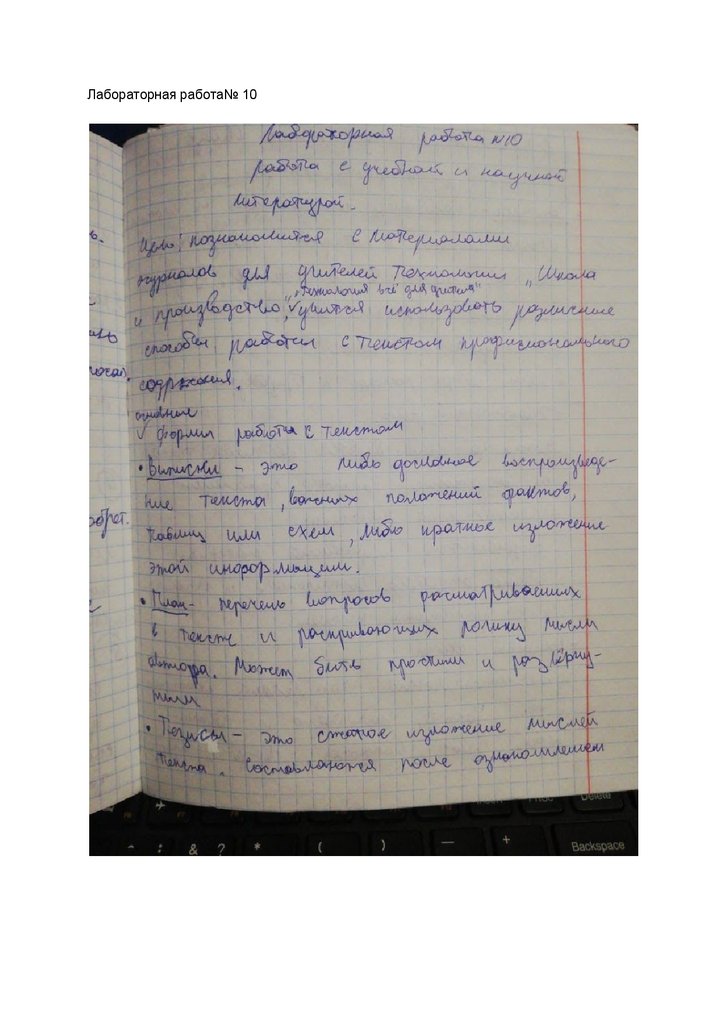 Лабораторная работа№ 10
Лабораторная работа №10
работа с учебной и научной
литературой.
Цель: познакомится с материалами
журналов для учителей технологии „Школа
и производство", „Технология всё для учителя" учится использовать различные
способы работы с текстом професионального
содржания.
основные
формы работы с текстом
• Выписки – это либо дословное воспроизведе-
ние текста, важных положений фактов,
таблиц или схем, либо краткое изложение
этой информации.
• План- перечень вопросов расматриваемых
в тексте и раскривающих логику мысли
автора. Может быть простим и развёрну-
тым
• Тезисы – это сжатое изложение мыслей
текста. Составляются после ознакомлением
Delete
Backspace
& ? * ( ) — +